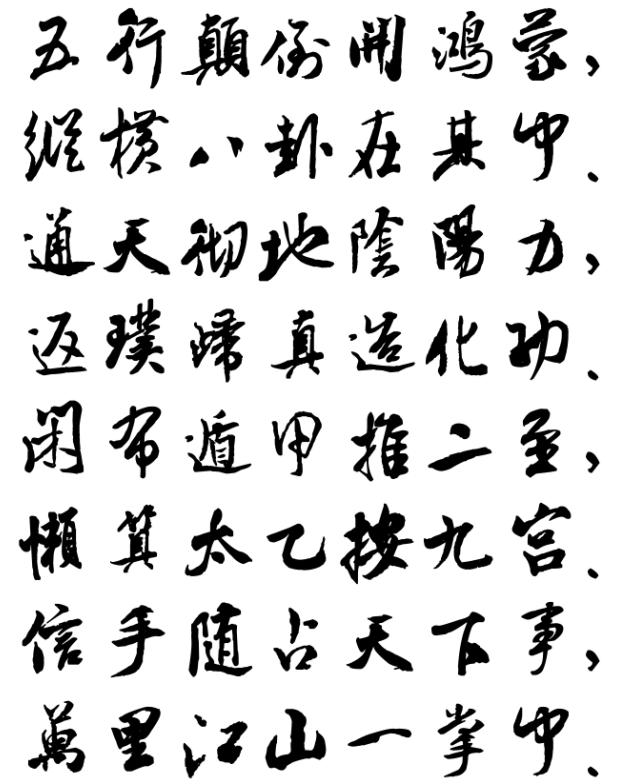 五行顛倒開鴻蒙,
縱横八卦在其中.
通天彻地陰陽力,
返璞歸真造化功.
閑布遁甲推二至,
懶算太乙按九宫.
信手随占天下事,
萬里江山一掌中.